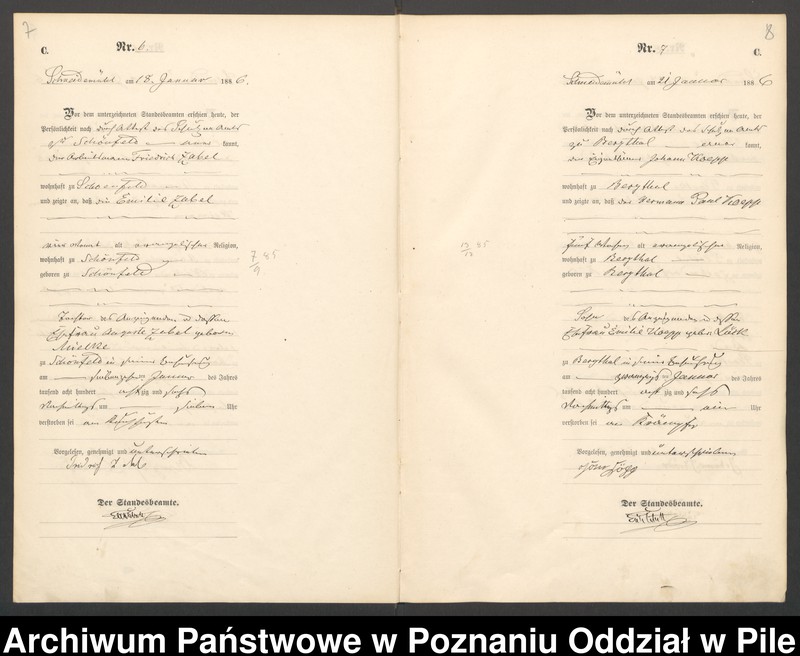 7
C.
Nr. 6
Schneidemühl am 18. Januar 1886.
Vor dem unterzeichneten Standesbeamten erschien heute, der
Persönlichkeit nach durch Attest des Schulzenamts
zu Schönfeld kannt,
der Friedrich Zabel
wohnhaft zu Schoenfeld
und zeigte an, daß die Emilie Zabel
alt evangelischer Religion,
wohnhaft zu Schönfeld
geboren zu Schönfeld
7/9 85
Tochter des Anzeigenden und dessen
Ehefrau Auguste Zabel geborene
Mielke
zu Schönfeld in seiner Behausung
am siebenzehnten Januar des Jahres
tausend acht hundert achtzig und sechs
Nachmittags um sieben Uhr
verstorben sei an
Vorgelesen, genehmigt und unterschrieben
Der Standesbeamte.
8
Nr. 7
C.
Schneidemühl am 21 Januar 1886
Vor dem unterzeichneten Standesbeamten erschien heute, der
Persönlichkeit nach durch Attest des Schulzenamts
zu Bergthal kannt,
der Eigenthümer Johann Koepp
wohnhaft zu Bergthal
und zeigte an, daß der Hermann Paul Koepp
fünf Wochen alt evangelischer Religion,
wohnhaft zu Bergthal
geboren zu Bergthal
85
Sohn des Anzeigenden und dessen
Ehefrau Emilie Koepp geboren Lück
zu Bergthal in seiner Behausung
am zwanzigsten Januar des Jahres
tausend acht hundert achtzig und sechs
Nachmittags um ein Uhr
verstorben sei an Krämpfe
Vorgelesen, genehmigt und unterschrieben
Der Standesbeamte.
Archiwum Państwowe w Poznaniu Oddział w Pile